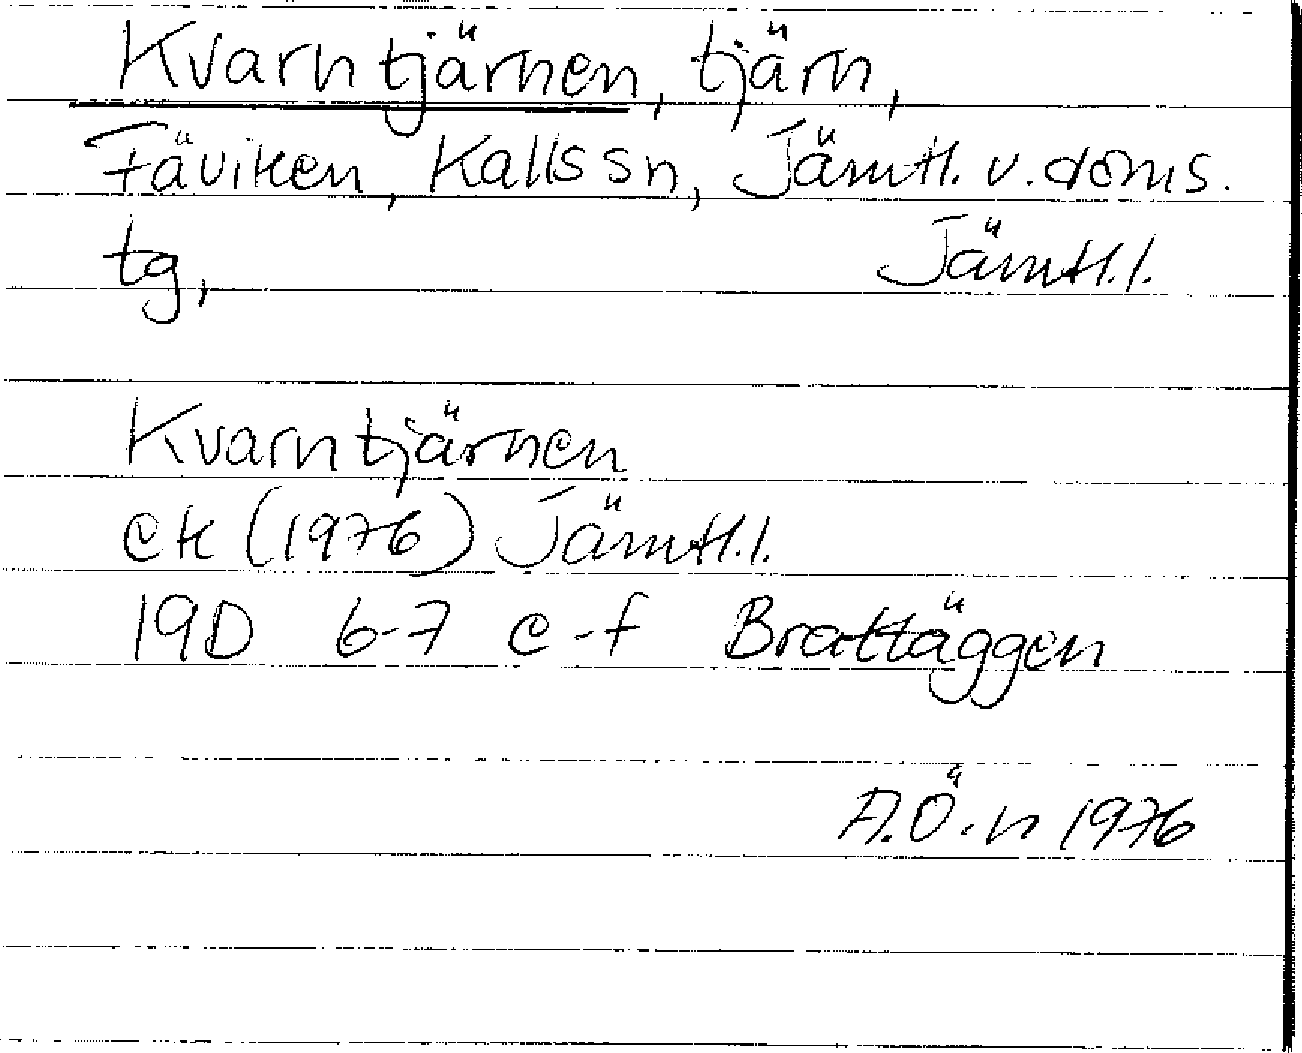 Kvarntjärnen, tjärn,
Fäviken, Kalls sn, Jämtl. v. doms.
tg, Jämtl. l.
Kvarntjärnen
ek (1976) Jämtl. l.
19D 6-7 e-f Brattäggen
A.Ö.n 1976